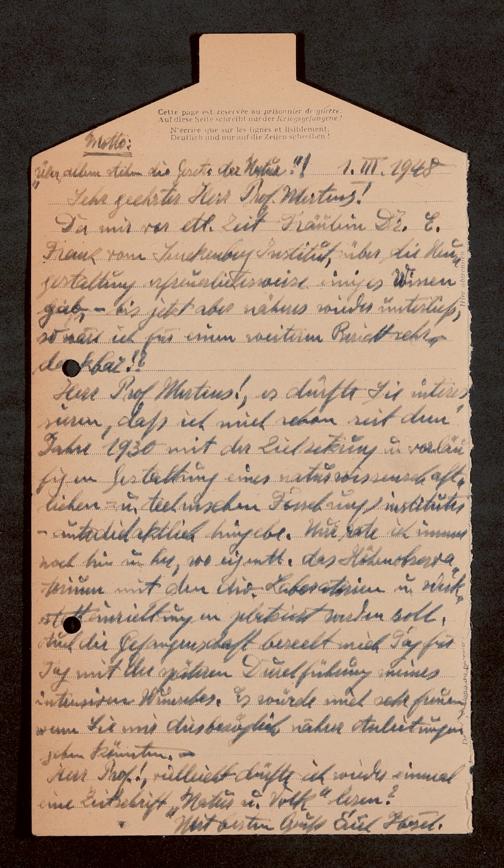 Cette page est réservée au prisonnier de guerre.
Auf diese Seite schreibt nur der Kriegsgefangene!
N'écrire que sur les lignes et lisiblement.
Deutlich und nur auf die Zeilen schreiben!
Motto:
"Über allem stehen die Gesetze der Natur"! 1. III. 1948
Sehr geehrter Herr Prof. Mertens!
Da mir vor etl. Zeit Fräulein Dr. E.
Franz vom Senckenberg Institut, über die Neu-
gestaltung erfreulicherweise einiges Wissen
gab, - bis jetzt aber näheres wieder unterließ,
so wäre ich für einen weiteren Bericht sehr
dankbar!?
Herr Prof. Mertens!, es dürfte Sie interes-
sieren, daß ich mich schon seit dem
Jahre 1930 mit der Zielsetzung u. vorläu-
figen Gestaltung eines naturwissenschaft-
lichen- u. technischen Forschungsinstitutes
- autodidaktlich hingebe. Nur rate ich immer
noch hin u. her, wo eigentl. das Höhenobserva-
torium mit den div. Laboratorien u. Werk-
statteinrichtungen platziert werden soll.
Auch die Gefangenschaft beseelt mich Tag für
Tag mit der späteren Durchführung meines
intensiven Wunsches. Es würde mich sehr freuen
wenn Sie mir diesbezüglich nähere Anleitungen
geben könnten. -
Herr Prof., vielleicht dürfte ich wieder einmal
eine Zeitschrift "Natur u. Volk" lesen?
Mit besten Gruß